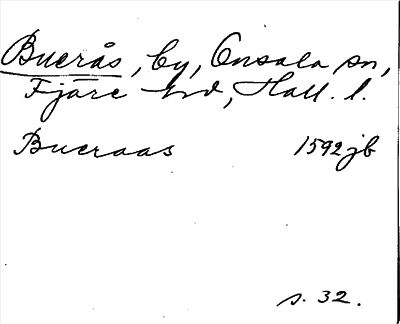 Buerås, by, Onsala sn,
Fjäre hd, Hall. l.
Bueraas 1592 jb
s. 32.